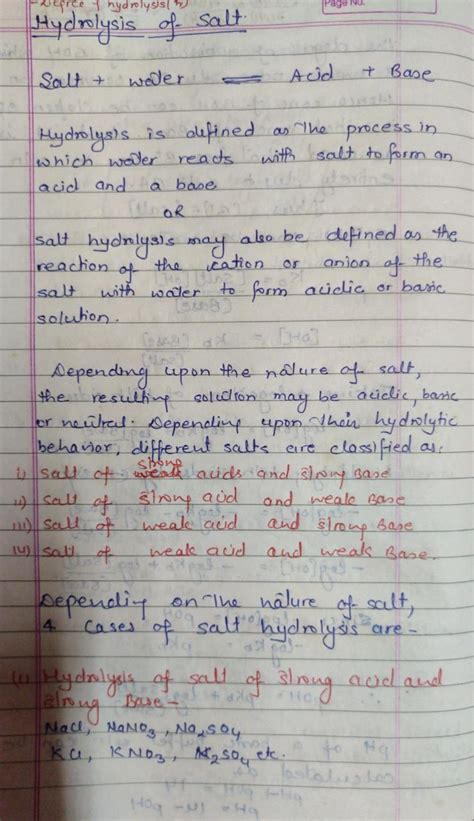 - Degree of hydrolysis (h)
Page No.
Hydrolysis of Salt
Salt + water ⇌ Acid + Base
Hydrolysis is defined as the process in
which water reacts with salt to form an
acid and a base
OR
salt hydrolysis may also be defined as the
reaction of the cation or anion of the
salt with water to form acidic or basic
solution.
Depending upon the nature of salt,
the resulting solution may be acidic, basic
or neutral. Depending upon their hydrolytic
behavior, different salts are classified as:
i) Salt of strong acids and strong Base
ii) Salt of strong acid and weak Base
iii) Salt of weak acid and strong Base
iv) Salt of weak acid and weak Base.
Depending on the nature of salt,
4 cases of salt hydrolysis are -
(i) Hydrolysis of salt of strong acid and
strong Base -
NaCl, NaNO3, Na2SO4
KCl, KNO3, K2SO4 etc.